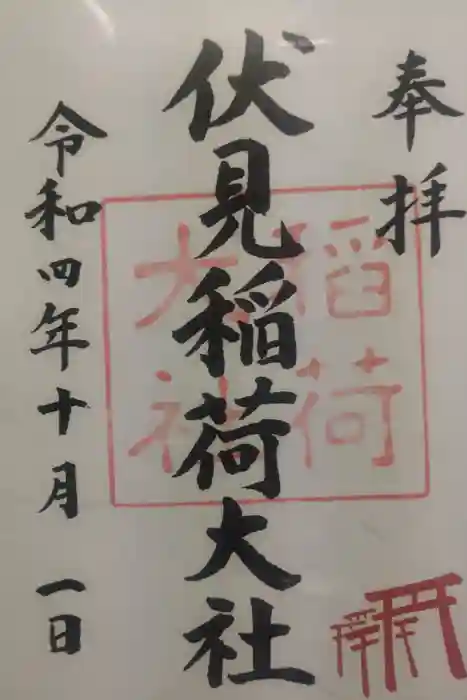 奉拝
伏見稲荷大社
稲荷
大社
令和四年十月一日